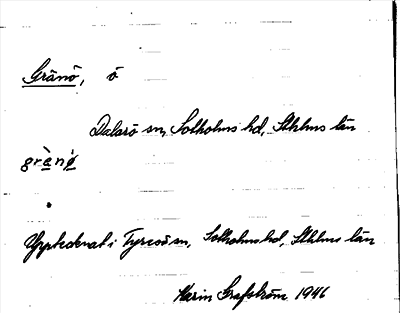 Gränö, ö
Dalarö sn, Sotholms hd, Sthlms län
grànø̀
Upptecknat i Tyresö sn, Sotholms hd, Sthlms län
Karin Grafström 1946